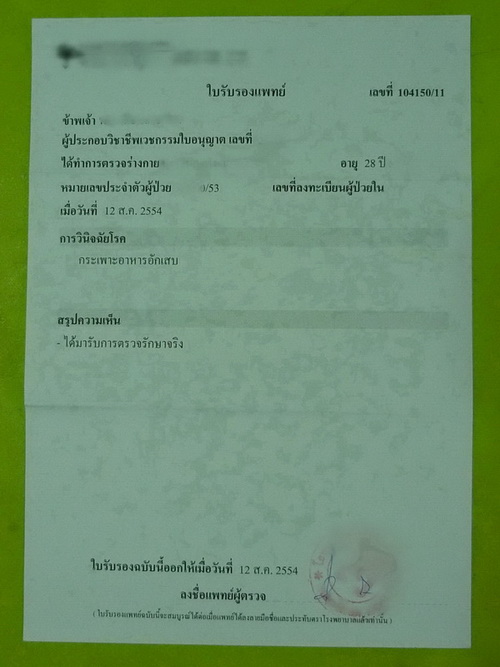 ใบรับรองแพทย์ เลขที่ 104150/11
ข้าพเจ้า
ผู้ประกอบวิชาชีพเวชกรรมใบอนุญาต เลขที่
ได้ทำการตรวจร่างกาย อายุ 28 ปี
หมายเลขประจำตัวผู้ป่วย /53 เลขที่ลงทะเบียนผู้ป่วยใน
เมื่อวันที่ 12 ส.ค. 2554
การวินิจฉัยโรค
กระเพาะอาหารอักเสบ
สรุปความเห็น
- ได้มารับการตรวจรักษาจริง
ใบรับรองฉบับนี้ออกให้เมื่อวันที่ 12 ส.ค. 2554
ลงชื่อแพทย์ผู้ตรวจ
( ใบรับรองแพทย์ฉบับนี้จะสมบูรณ์ได้ต่อเมื่อแพทย์ได้ลงลายมือชื่อและประทับตราโรงพยาบาลแล้วเท่านั้น )